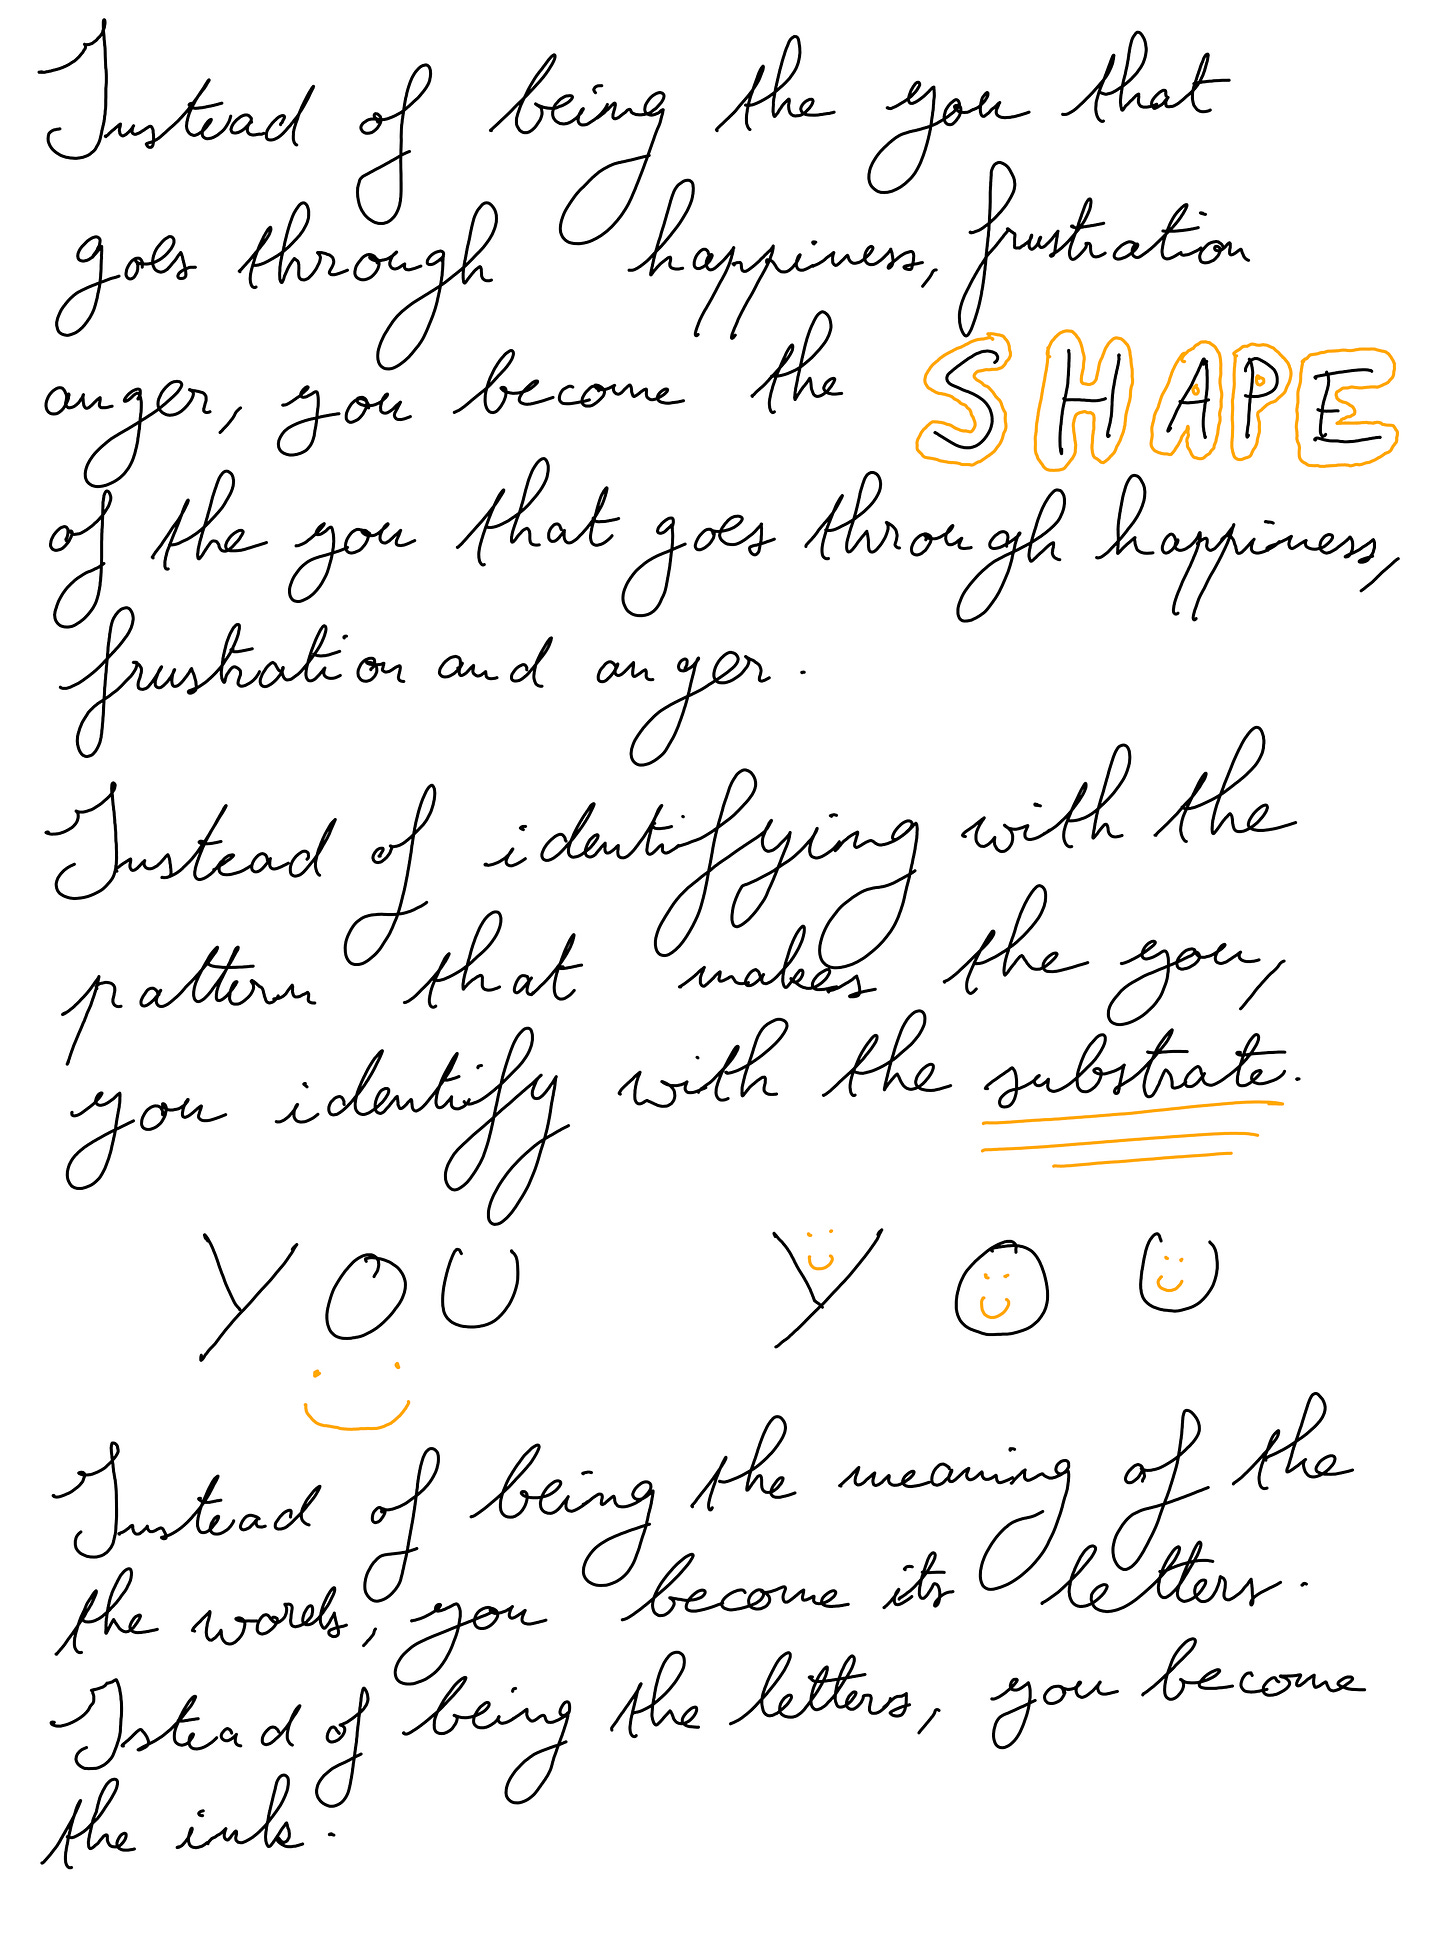 Instead of being the you that
goes through happiness, frustration
anger, you become the SHAPE
of the you that goes through happiness,
frustration and anger.
Instead of identifying with the
pattern that makes the you,
you identify with the substrate.
YOU Y O U
Instead of being the meaning of the
the words, you become its letters.
Istead of being the letters, you become
the ink.